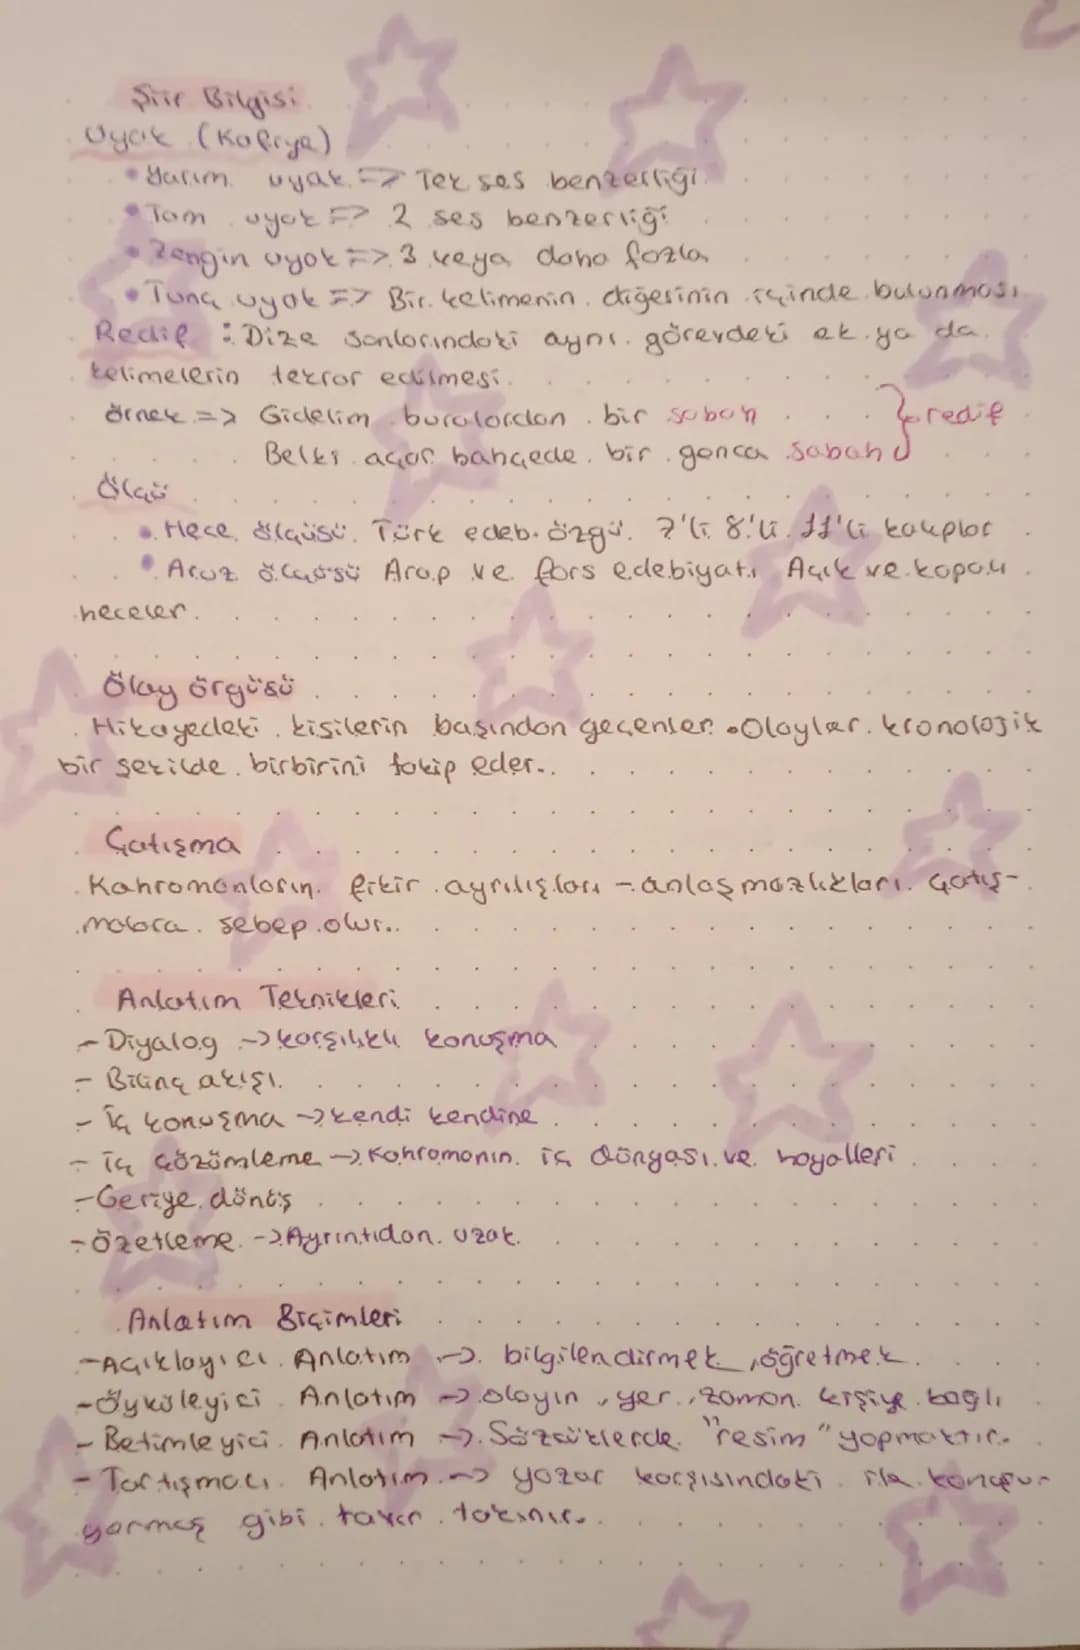 Şiir Bilgisi
Uyak (Kafiye)
• Yarım uyak => Tek ses benzerliği
• Tam uyak => 2 ses benzerliği
• Zengin uyak => 3 veya daha fazla
• Tunç uyak => Bir kelimenin diğerinin içinde bulunması
Redif : Dize sonlarındaki aynı görevdeki ek ya da
kelimelerin tekrar edilmesi.
Örnek => Gidelim buralardan bir sabah } redif
Belki açar bahçede bir gonca sabah
Ölçü
• Hece ölçüsü Türk edeb. özgü. 7'li 8'li 11'li kalıplar
• Aruz ölçüsü Arap ve fars edebiyatı Açık ve kapalı
heceler.
Olay örgüsü
Hikayedeki kişilerin başından geçenler. • Olaylar kronolojik
bir şekilde birbirini takip eder.
Çatışma
Kahramanların fikir ayrılışları - anlaşmazlıkları. Çatış-
malara sebep olur.
Anlatım Teknikleri
- Diyalog -> karşılıklı konuşma
- Bilinç akışı
- İç konuşma -> kendi kendine
- İç çözümleme -> Kahramanın iç dünyası ve hayalleri
- Geriye dönüş
- Özetleme -> Ayrıntıdan uzak.
Anlatım Biçimleri
- Açıklayıcı Anlatım -> bilgilendirmek, öğretmek
- Öyküleyici Anlatım -> olayın, yer, zaman kişiye bağlı
- Betimleyici Anlatım -> Sözcüklerde "resim" yapmaktır.
- Tartışmacı Anlatım -> yazar karşısındaki ile konuşur-
gibi tavır takınır.